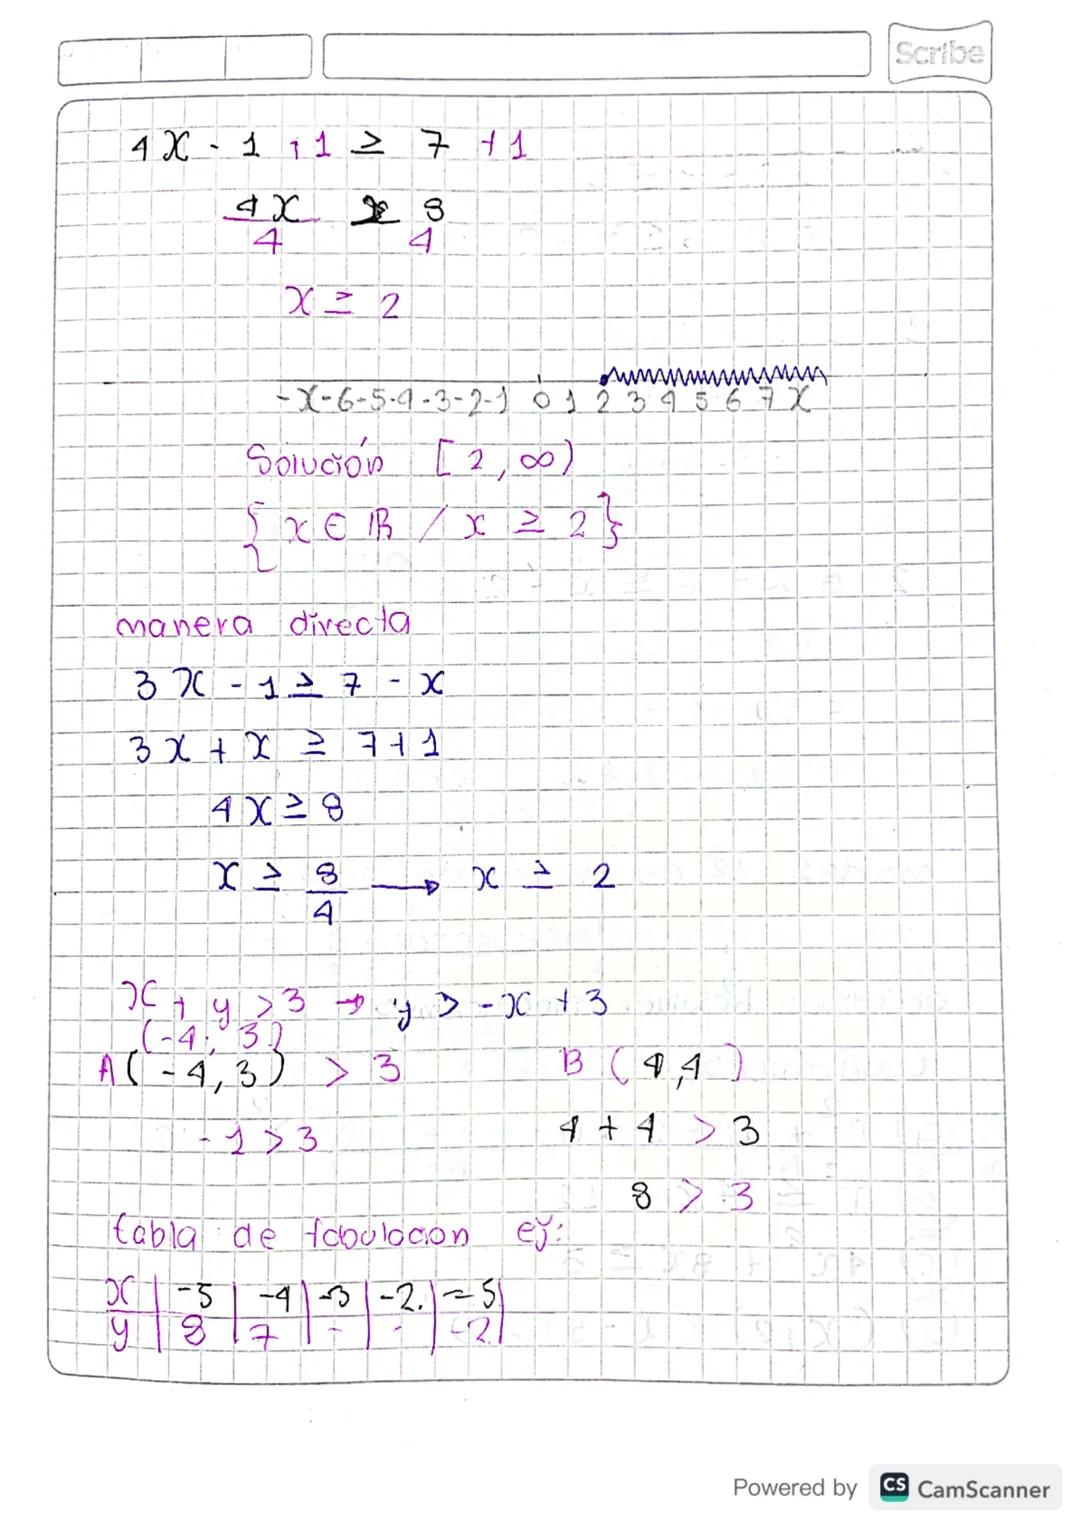 Scribe
4x - 1 + 1 ≥ 7 + 1
4x ≥ 8
4 4
x ≥ 2
-x -6 -5 -4 -3 -2 -1 0 1 2 3 4 5 6 7 x
Solución [2, ∞)
{x ∈ ℝ / x ≥ 2}
manera directa
3x - 1 ≥ 7 - x
3x + x ≥ 7 + 1
4x ≥ 8
x ≥ 8/4 → x ≥ 2
x + y > 3 → y > -x + 3
(-4, 3)
A(-4, 3) > 3 B (4,4)
-1 > 3 4 + 4 > 3
8 > 3
tabla de tabulacion ej:
x | -5 | -4 | -3 | -2 | = 5
y | 8 | 7 | - | - | -2
Powered by CS CamScanner